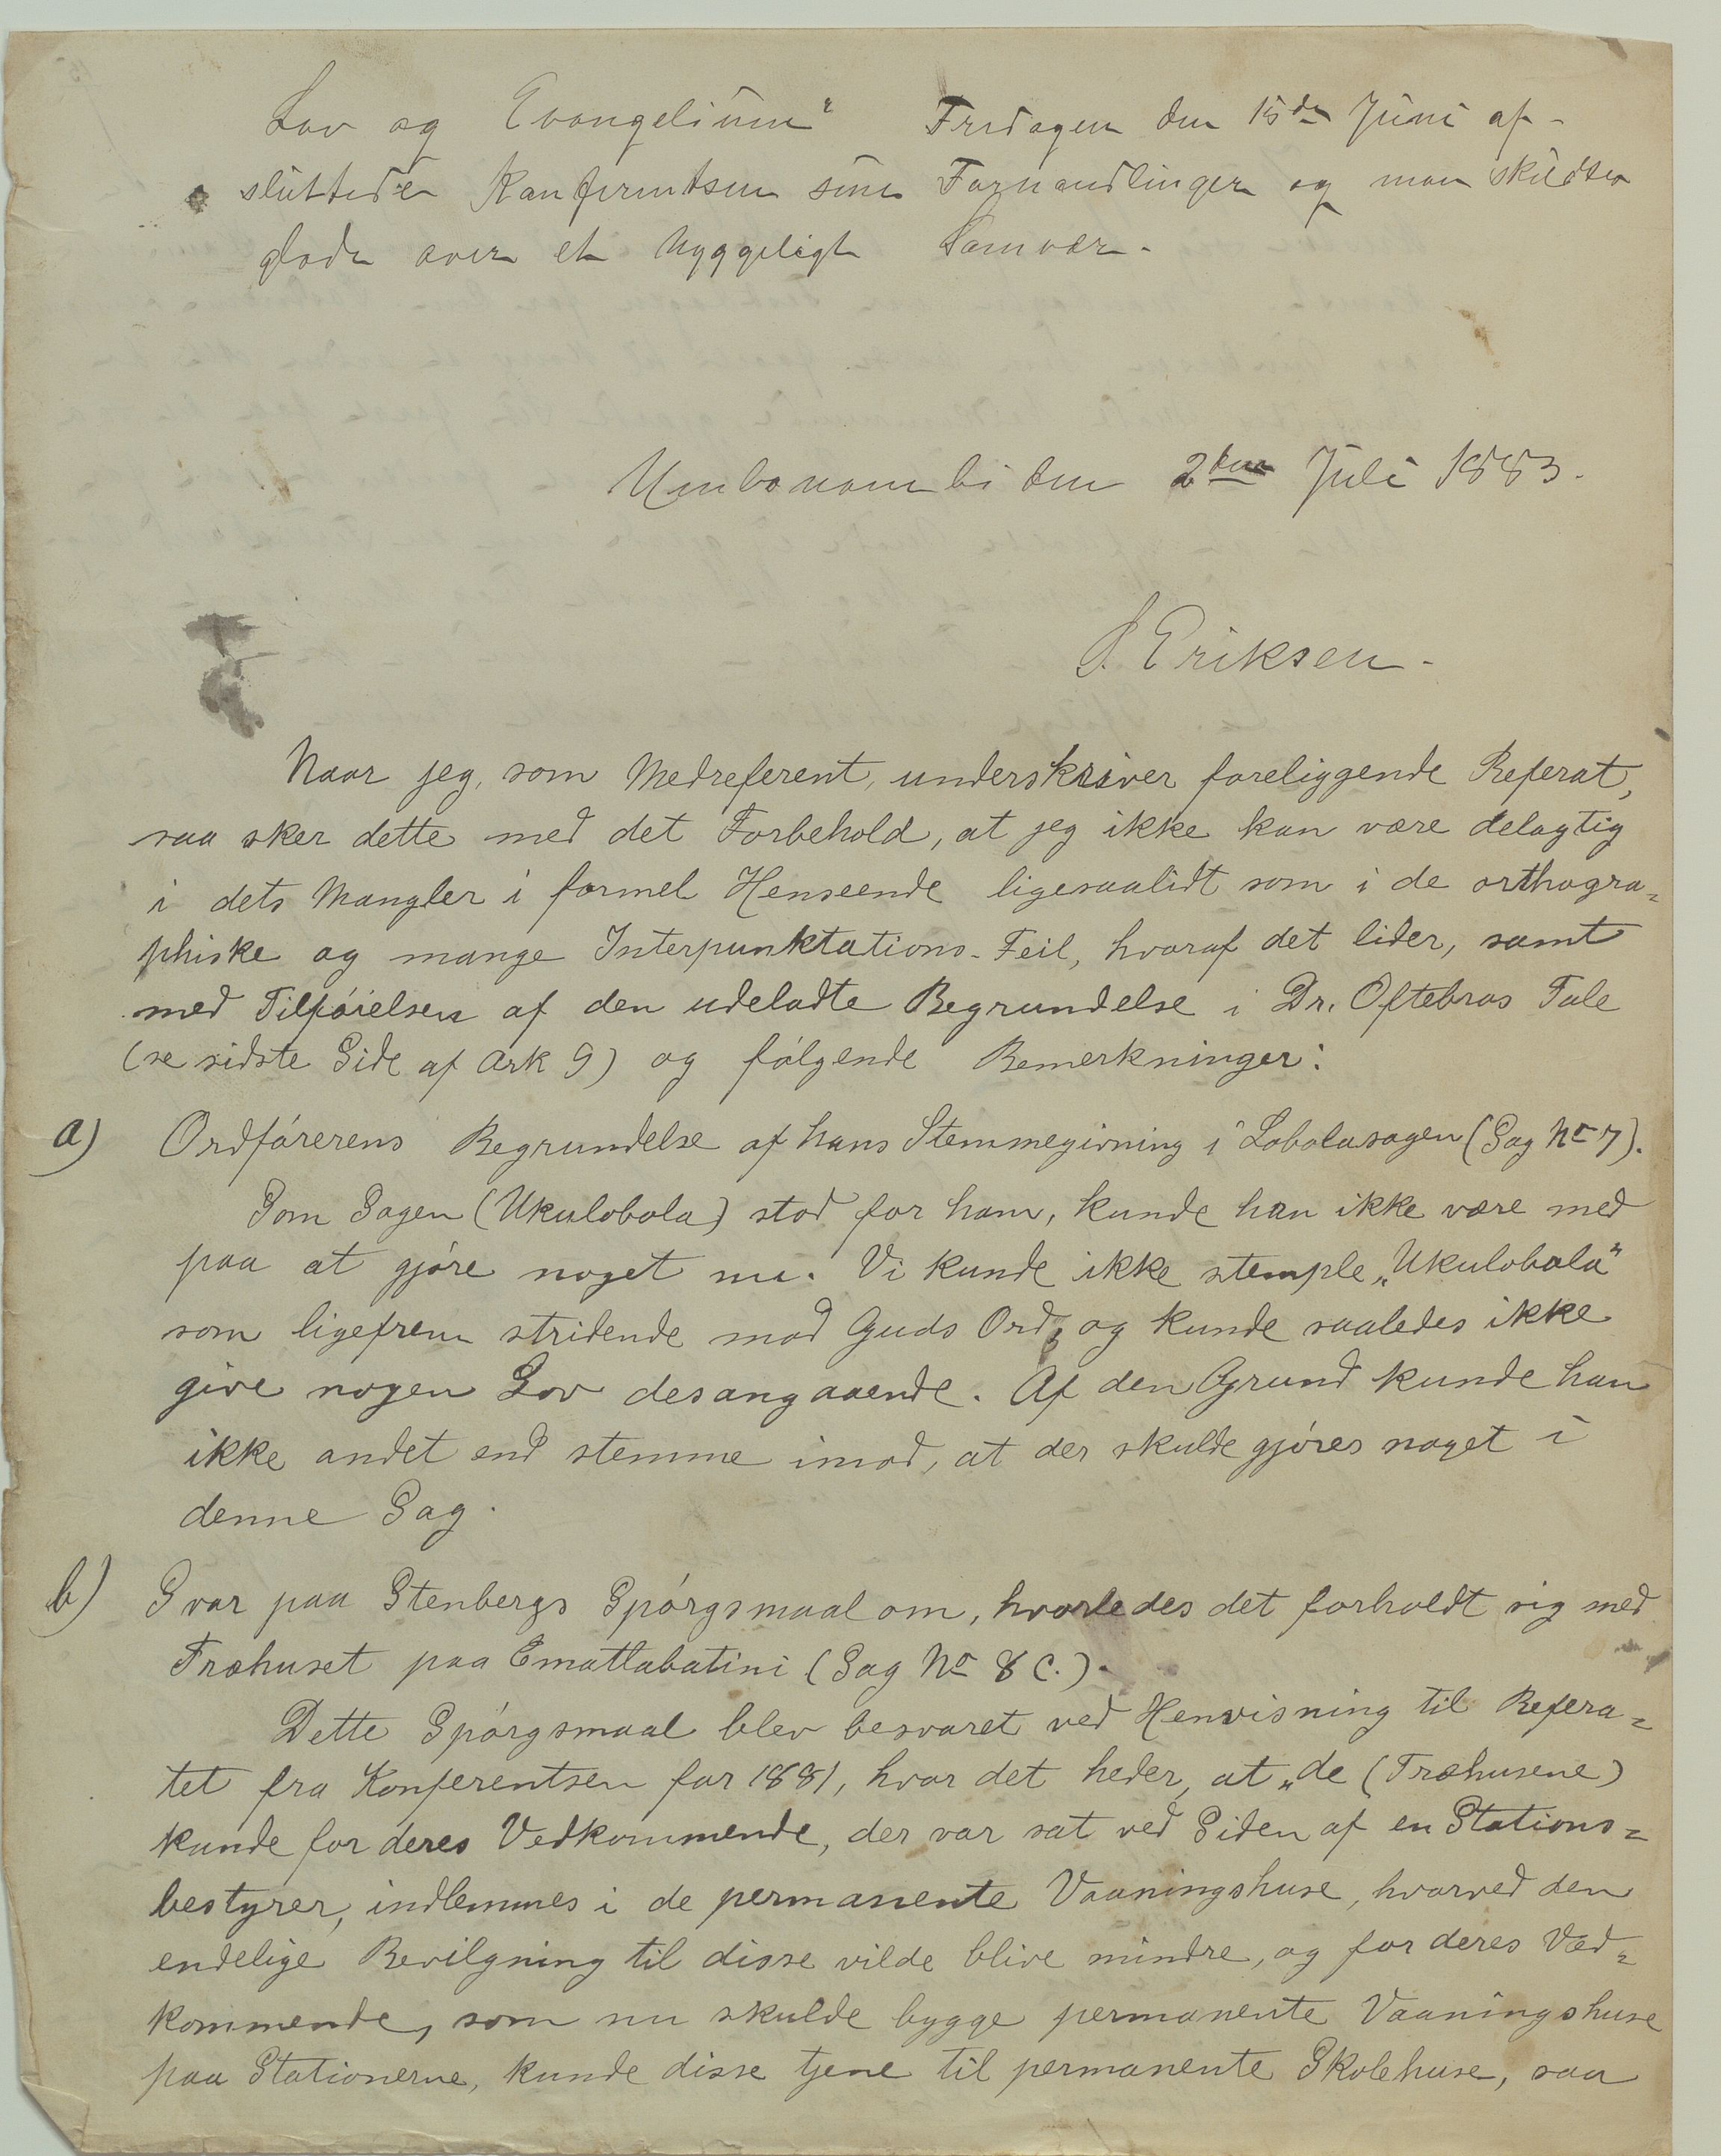 Lov og Evangelium" Fredagen den 15de Juni af-
sluttede Konferentsen sine Forhandlinger og man skildtes
glade over et hyggeligt Samvær.
Umbonambi den 2den Juli 1883.
S. Eriksen.
Naar jeg, som Medreferent, underskriver foreliggende Referat,
saa sker dette med det Forbehold, at jeg ikke kan være delagtig
i dets Mangler i formel Henseende ligesaalidt som i de orthogra=
phiske og mange Interpunktations-Feil, hvoraf det lider, samt
med Tilføielsen af den udeladte Begrundelse i Dr. Oftebros Tale
(se sidste Side af Ark 9) og følgende Bemerkninger:
a) Ordførerens Begrundelse af hans Stemmegivning i Lobolasagen (Sag No 7).
Som Sagen (Ukulobola) stod for ham, kunde han ikke være med
paa at gjøre noget nu. Vi kunde ikke stemple „Ukulobola"
som ligefrem stridende mod Guds Ord, og kunde saaledes ikke
give nogen Lov desangaaende. Af den Grund kunde han
ikke andet end stemme imod, at der skulde gjøres noget i
denne Sag.
b) Svar paa Stenbergs Spørgsmaal om, hvorledes det forholdt sig med
Træhuset paa Ematlabatini (Sag No 8 C.).
Dette Spørgsmaal blev besvaret ved Henvisning til Refera=
tet fra Konferentsen for 1881, hvor det heder, at „de (Træhusene)
kunde for deres Vedkommende, der var sat ved Siden af en Stations=
bestyrer, indlemmes i de permanente Vaaningshuse, hvorved den
endelige Bevilgning til disse vilde blive mindre, og for deres Ved=
kommende, som nu skulde bygge permanente Vaaningshuse
paa Stationerne, kunde disse tjene til permanente Skolehuse, saa